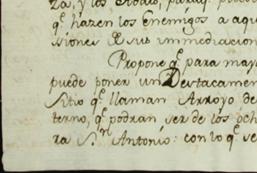 za, y los
q.e hazen los Enemigos a aqu
siones de sus immediacion
Propone q.e para may
puede poner un Destacamen
sitio q.e llaman Arroyo de
terno, q.e podran ser de los och
ra S.n Antonio: con lo q.e se